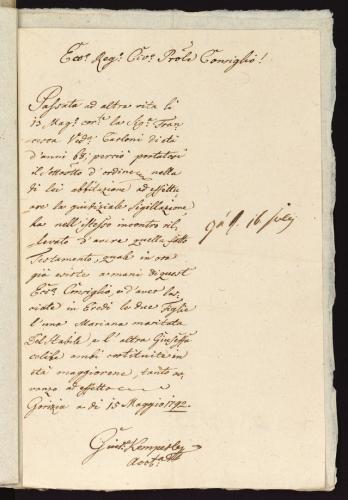 Ecc. Reg. Civ. Prõle Consiglio!
Passata ad altra vita li
13 Mag. cor. la Sig. Fran-
cesca Ved. Carloni di età
d'anni 63; perciò portatosi
il d'ordine nella
di lei abbitazione ad effettu-
are la giudiziale Sigillazione
ha nell'istesso incontro ril-
levato d'avere quella fatto
Testamento, quale in ora
già esiste a mani di quest
Ecc. Consiglio, e d'aver la-
sciate in Eredi le due Figlie
l'una Mariana maritata
Del Stabile e l'altra Giuseffa
celibe ambi costituite in
età maggiorene, tanto av-
vanzo ad effetto
Gorizia a di 15 Maggio 1792
16 July
Kemperle